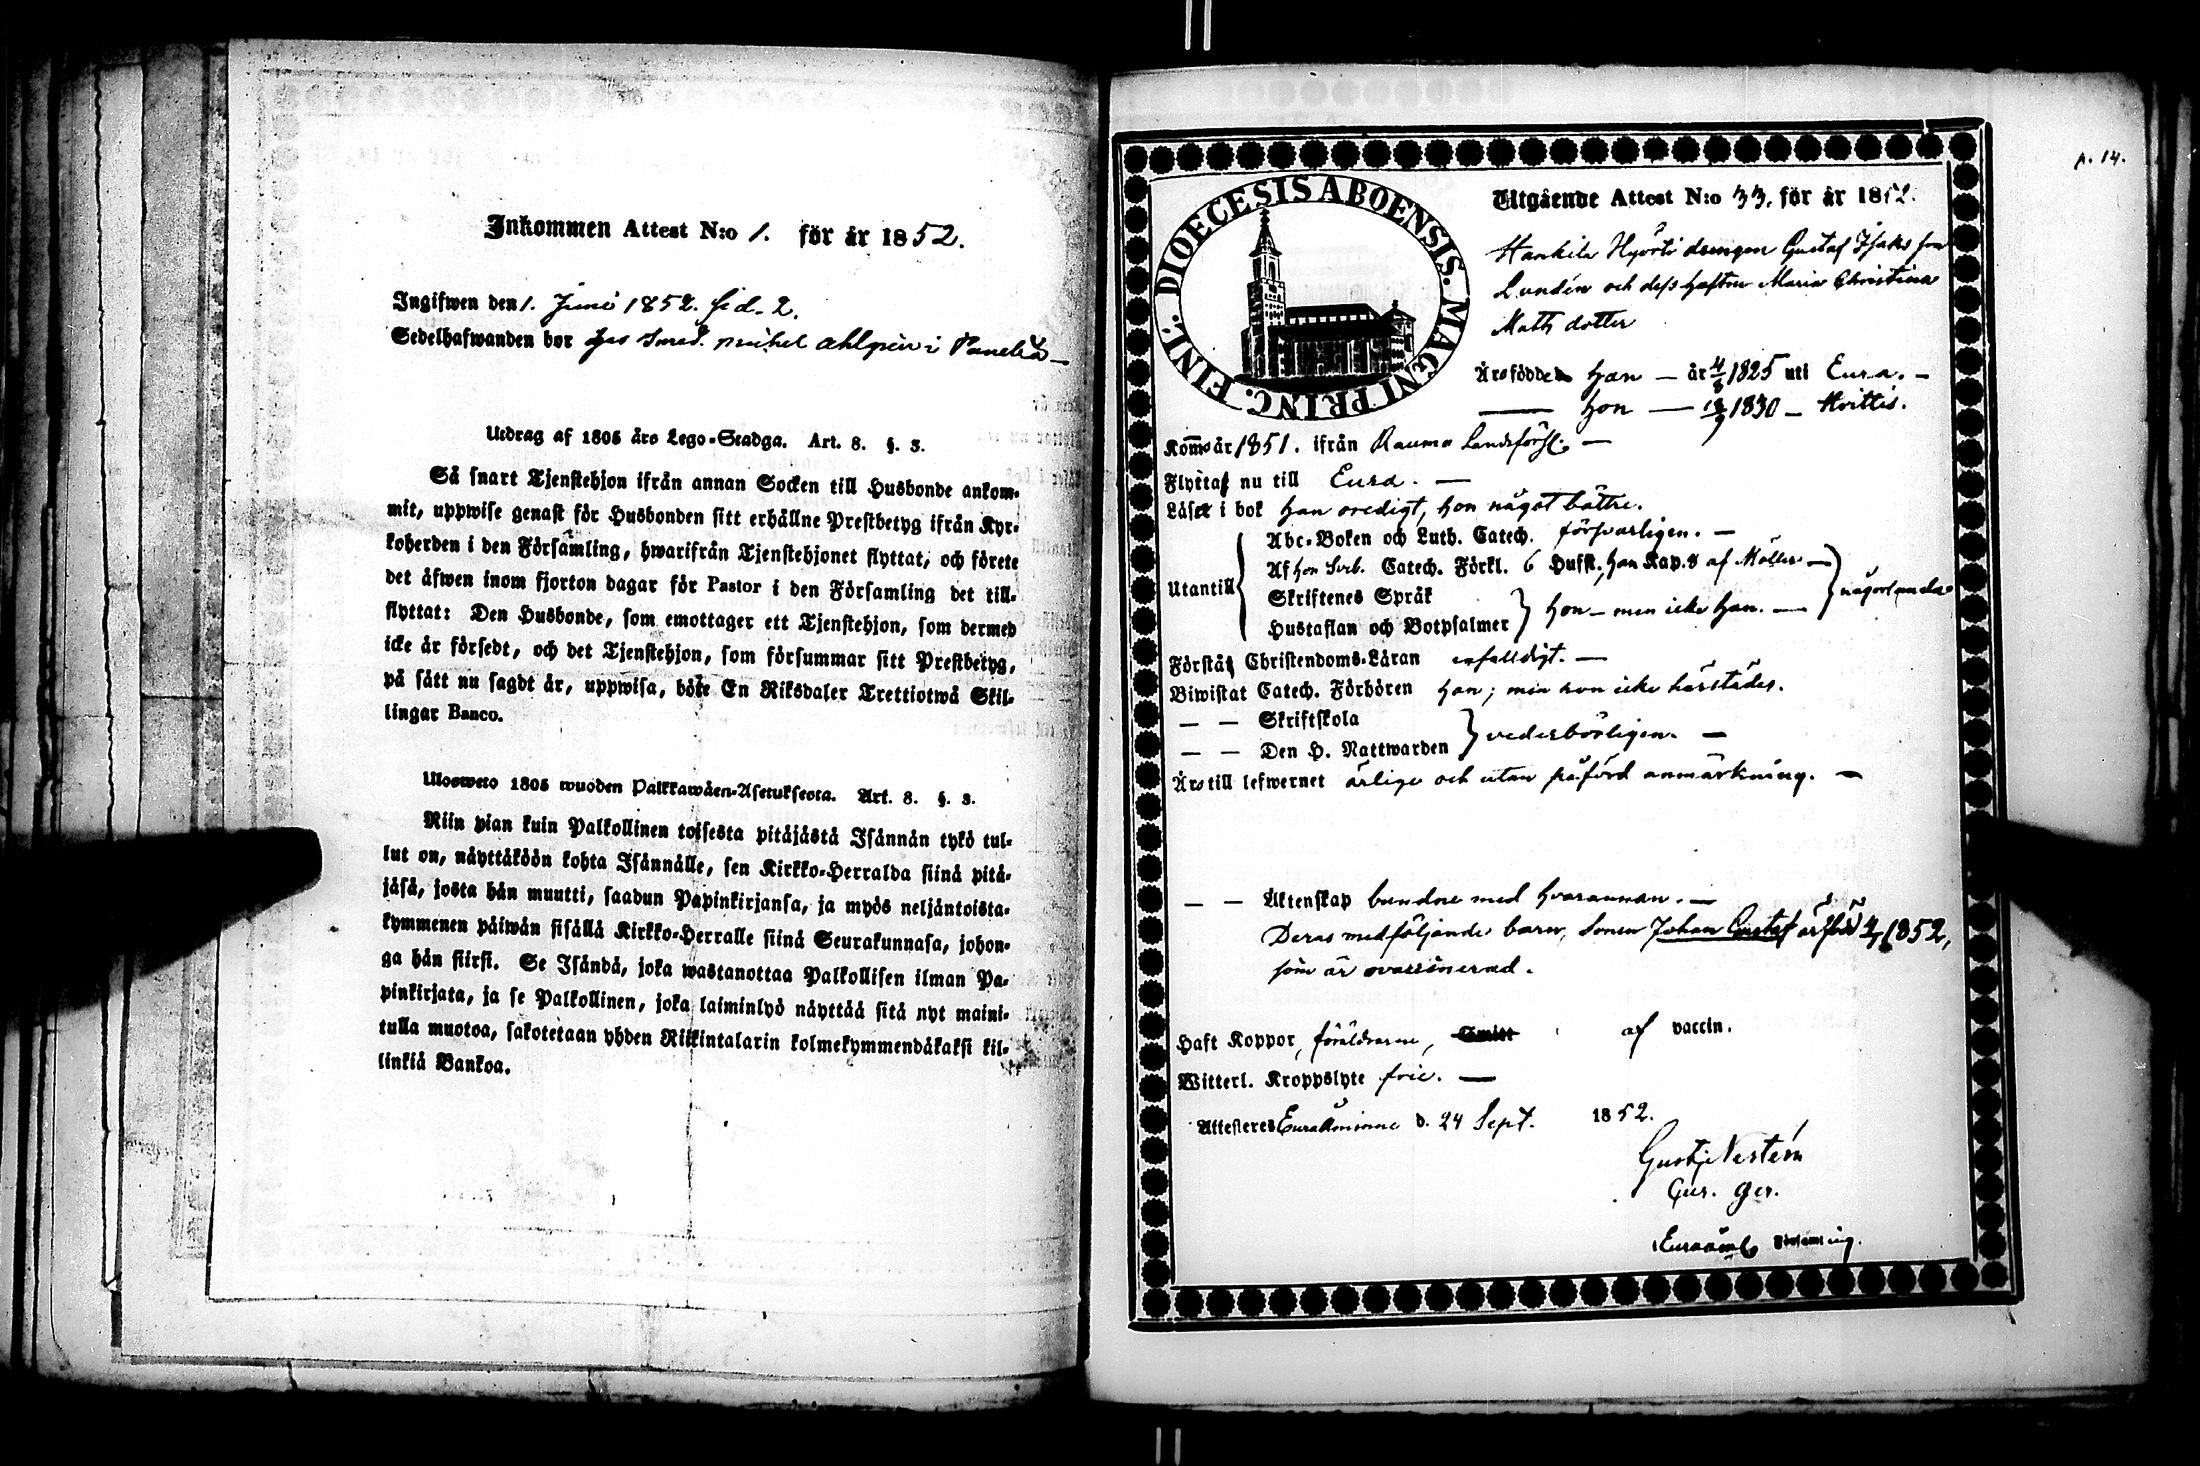 Inkommen Attest N:o 1. för år 1852.
Ingifwen den 1. Juni 1852. sid. 2.
Sedelhafwanden bor hos Smed. Mickel Ahlgrén i Panelia
Utdrag af 1805 års Lego-Stadga. Art. 8. §. 3.
Så snart Tjenstehjon ifrån annan Socken till Husbonde ankom-
mit, uppwise genast för Husbonden sitt erhållne Prestbetyg ifrån Kyr-
koherden i den Församling, hwarifrån Tjenstehjonet flyttat, och förete
det äfwen inom fjorton dagar för Pastor i den Församling det till-
flyttat: Den Husbonde, som emottager ett Tjenstehjon, som dermed
icke är försedt, och det Tjenstehjon, som försummar sitt Prestbetyg,
på sätt nu sagdt är, uppwisa, böte En Riksdaler Trettiotwå Skil-
lingar Banco.
Ulosweto 1805 wuoden Palkkawäen-Asetuksesta. Art. 8. §. 3.
Niin pian kuin Palkollinen toisesta pitäjästä Isännän tykö tul-
lut on, näyttäköön kohta Isännälle, sen Kirkko-Herralda siinä pitä-
jäsä, josta hän muutti, saadun Papinkirjansa, ja myös neljäntoista-
kymmenen päiwän sisällä Kirkko-Herralle siinä Seurakunnasa, johon-
ga hän siirsi. Se Isändä, joka wastanottaa Palkollisen ilman Pa-
pinkirjata, ja se Palkollinen, joka laiminlyö näyttää sitä nyt maini-
tulla muotoa, sakotetaan yhden Riikintalarin kolmekymmendäkaksi kil-
linkiä Bankoa.
p. 14.
DIOECESIS ABOENSIS. MAGNI PRINC. FINL.
Utgående Attest N:o 33. för år 1852.
Hankila Hyörti drengen Gustaf Isaks son
Lundén och dess hustru Maria Christina
Matts dotter
Äro födde han — år 4/8 1825 uti Eura. —
— hon — 18/9 1830 — Hvittis.
Komne år 1851. ifrån Raumo Landsförs. —
Flytta nu till Eura. —
Läsa i bok han oredigt, hon något bättre.
Utantill
Abc-Boken och Luth. Catech. försvarligen. —
Af hon Sveb. Catech. Förkl. 6 Hufst., han Kap. 8 af Möller —
Skriftenes Språk
Hustaflan och Botpsalmer } hon — men icke han. — } någorlunda
Förstå Christendoms-Läran enfalldigt. —
Biwistat Catech. Förhören han; men hon icke härstädes.
— — Skriftskola
— — Den H. Nattwarden } vederbörligen. —
Äro till lefwernet ärlige och utan påförd anmärkning. —
— — Äktenskap bundne med hvarannan. —
Deras medföljande barn, Sonen Johan Gustaf är född 4/7 1852,
som är ovaccinerad.
Haft Koppor, föräldrarne, Smitt af vaccin.
Witterl. Kroppslyte frie. —
Attesteres Euraåminne d. 24 Sept. 1852.
Gust. Nestén
Församling.